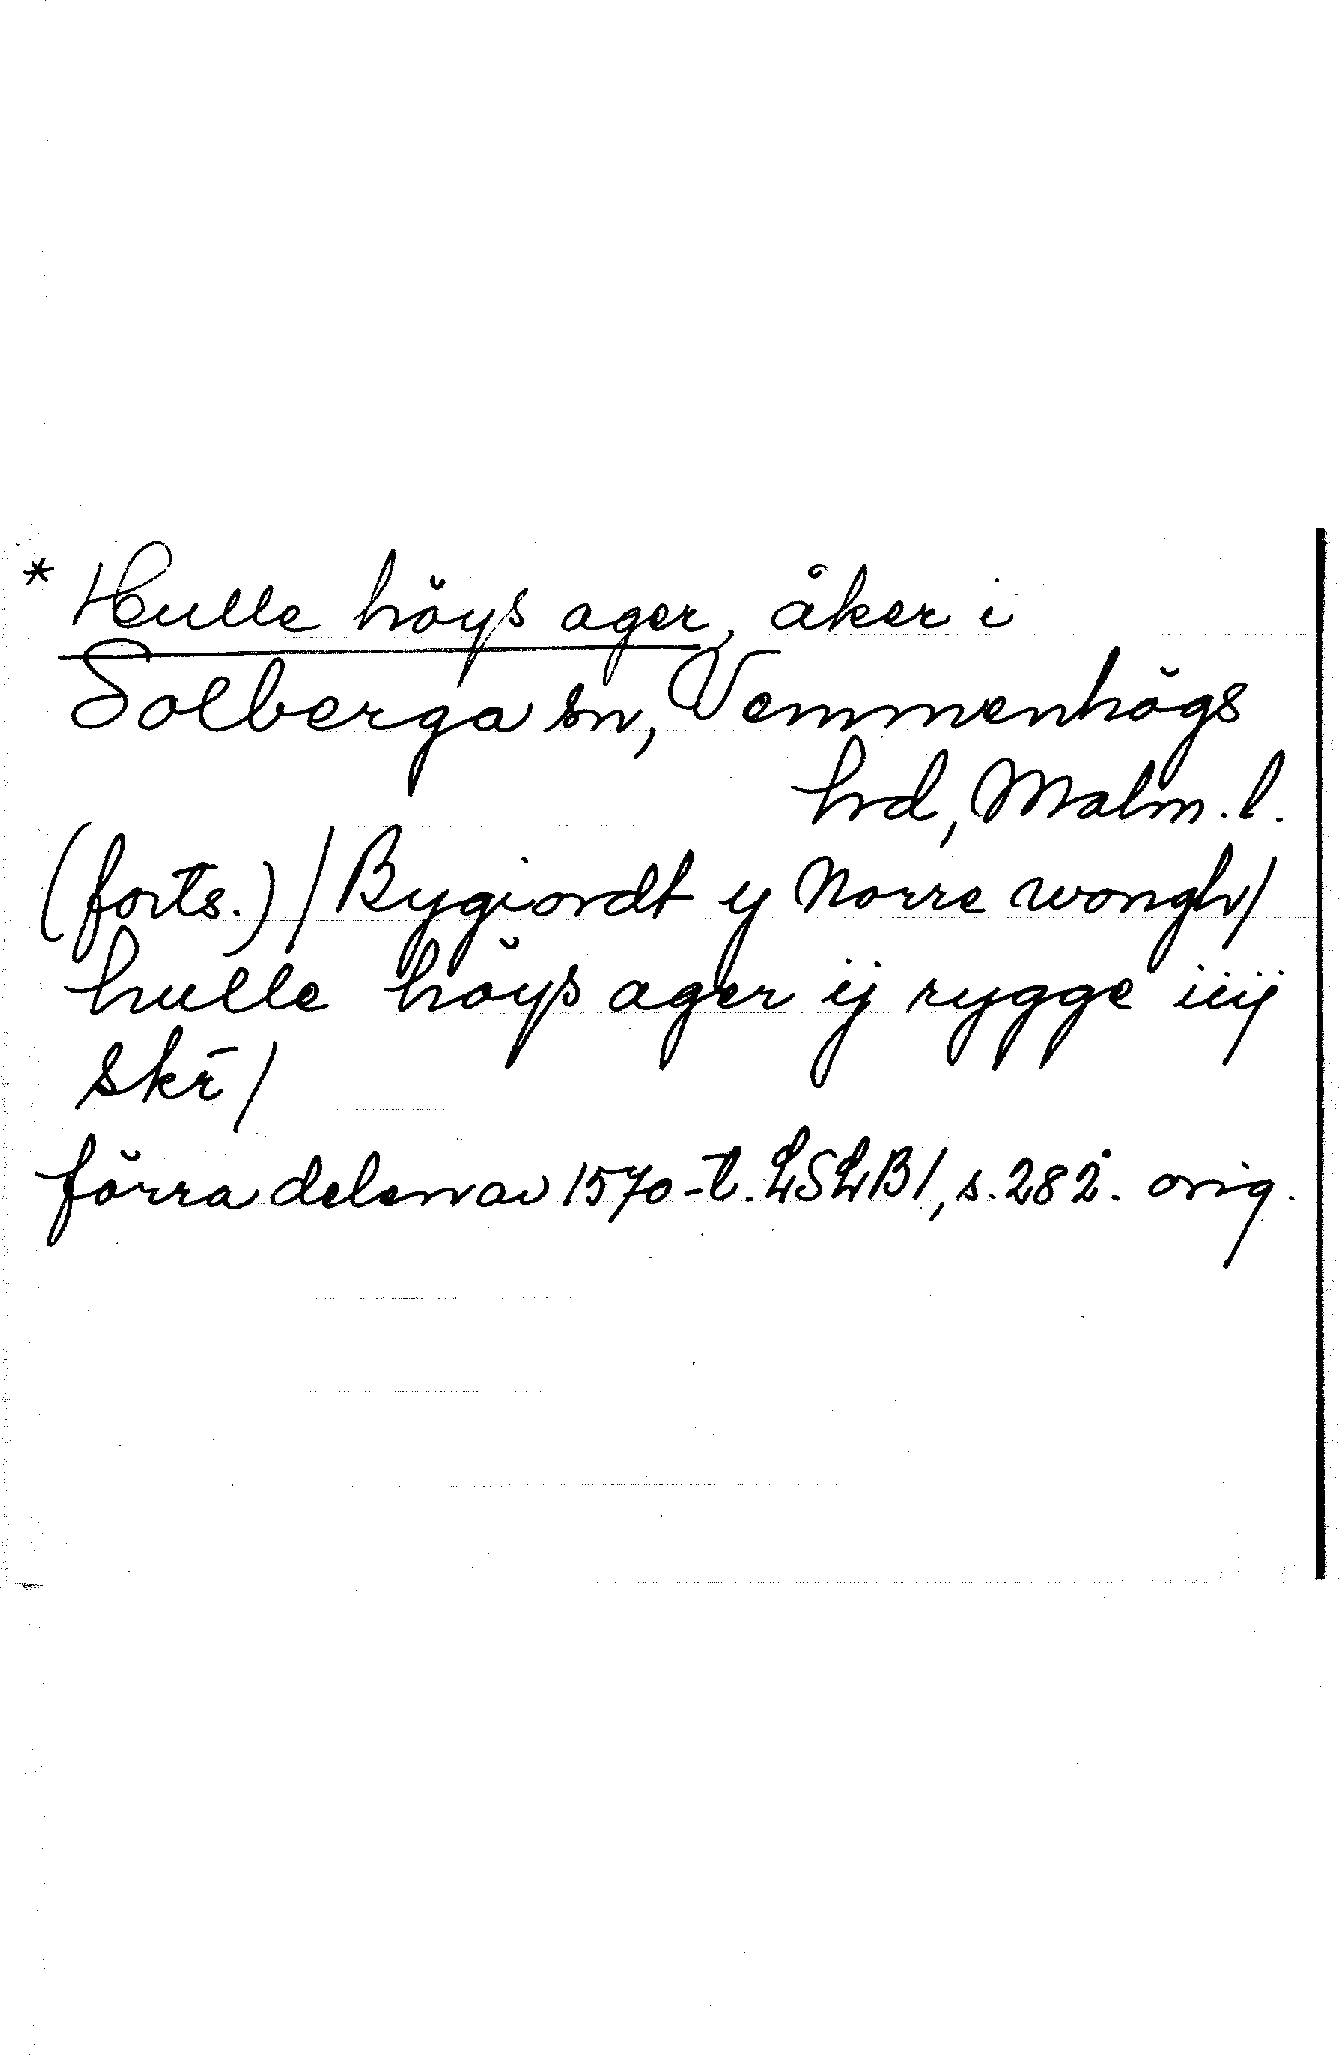 * Hulle höys ager, åker i
Solberga sn, Vemmenhögs
hd, Malm. l.
(forts.) / Bygiordt y Norre wongh/
hulle höys ager ij rygge iiij
skr̄ /
förra delen av 1570-t. LSLB1, s. 282. orig.